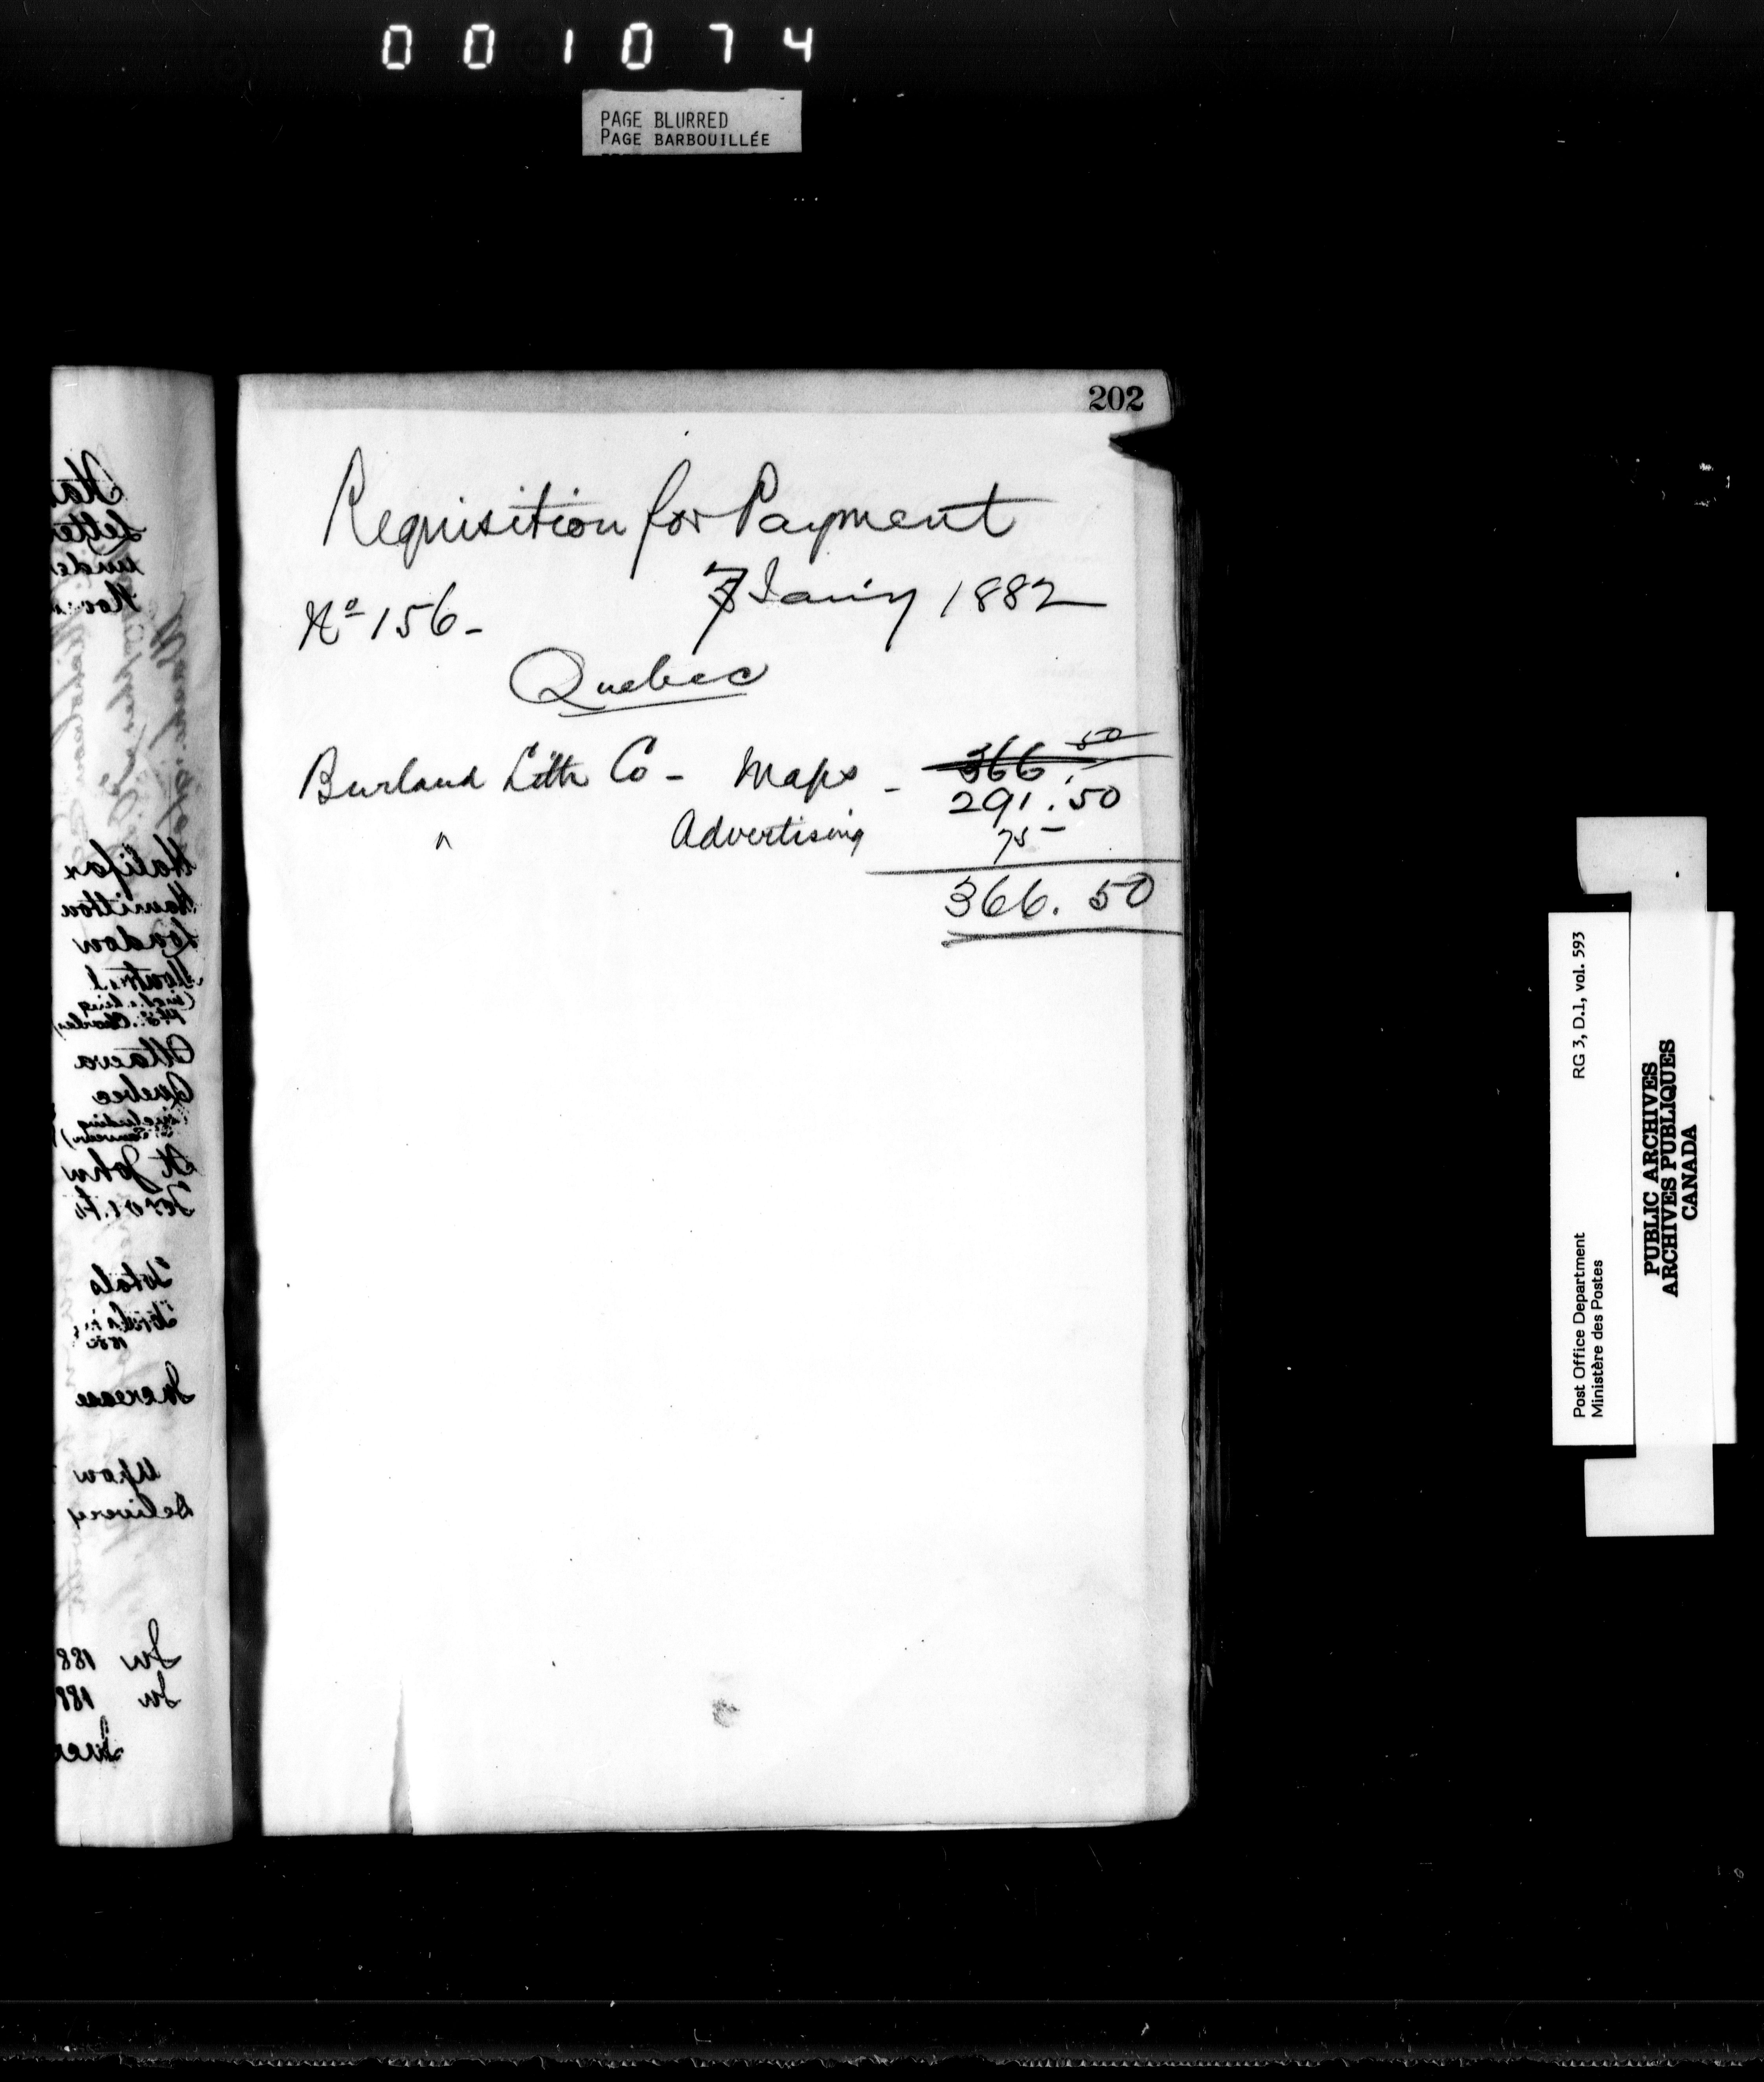 001074
PAGE BLURRED
PAGE BARBOUILLÉE
202
Requisition for Payment
No 156 - 7 Jany 1882
Quebec
Burland Lith Co - Maps - 366.50
291.50
" Advertising 75 -
366.50
Halifax
Hamilton
London
Ottawa
Quebec
including
St John
Totals
Increase
Upon
Delivery
In 188
In 188
RG 3, D.1, vol. 593
Post Office Department
Ministère des Postes
PUBLIC ARCHIVES
ARCHIVES PUBLIQUES
CANADA